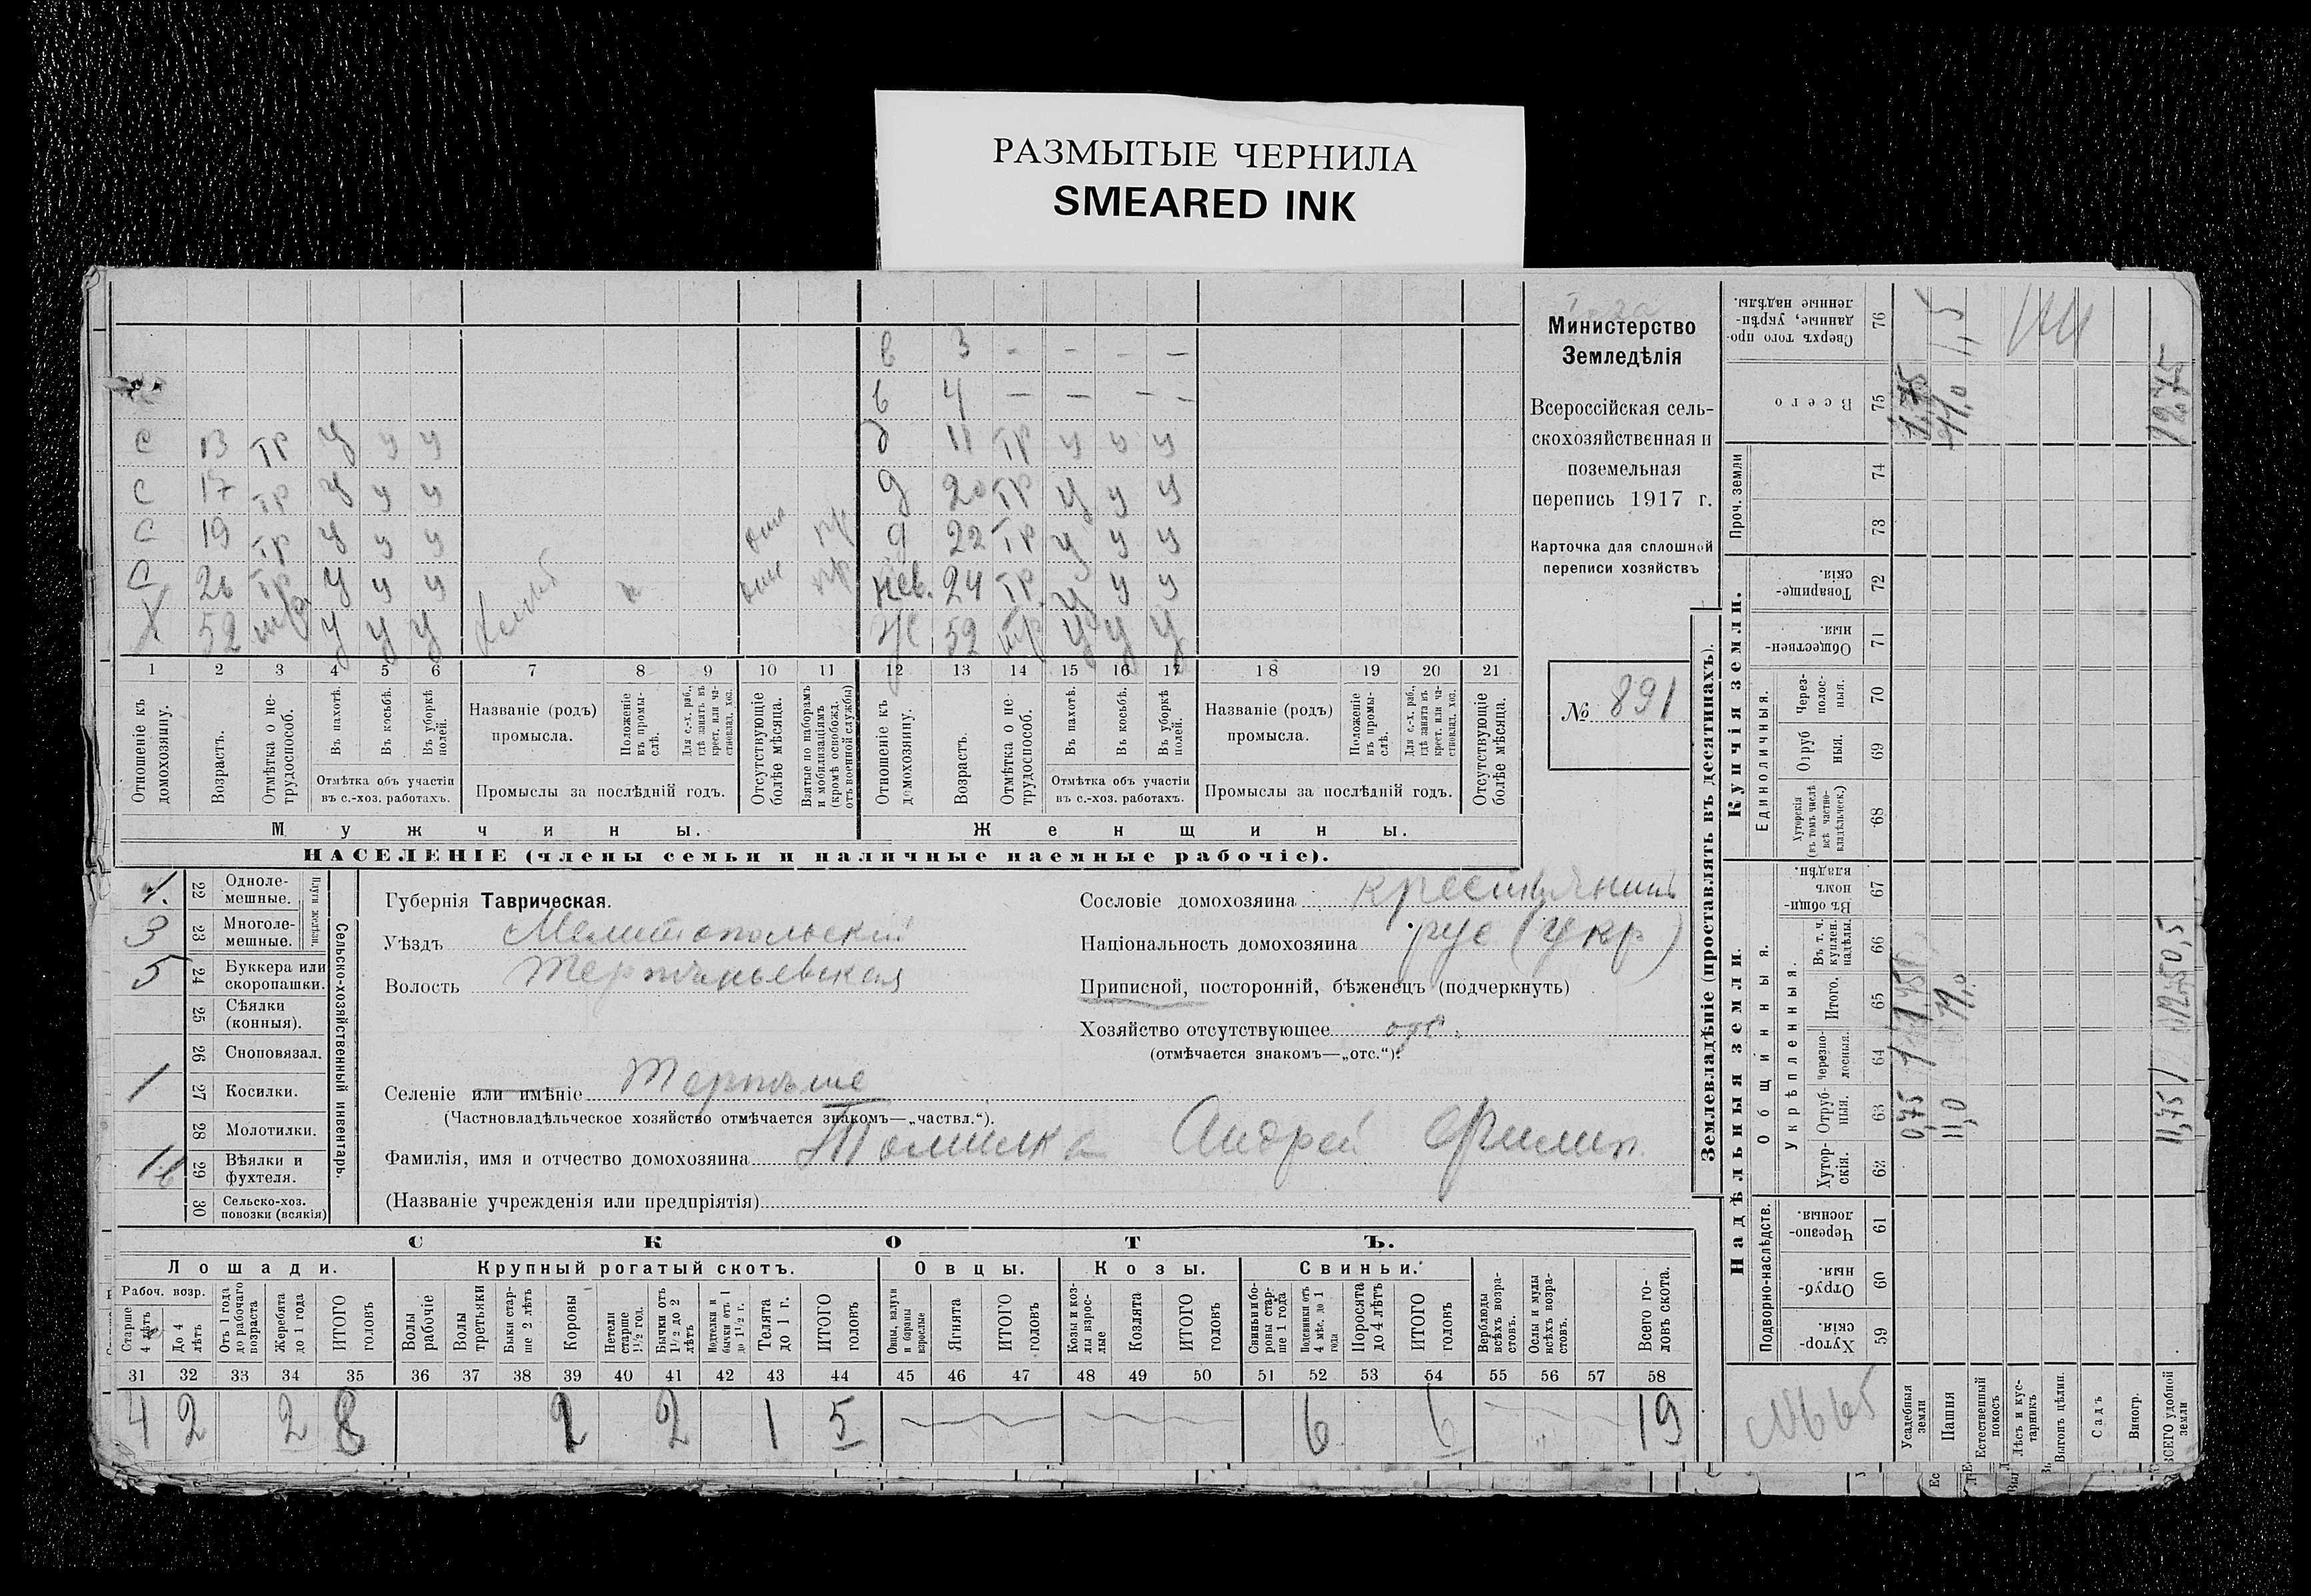 РАЗМЫТЫЕ ЧЕРНИЛА
SMEARED INK
Министерство
Земледѣлія
Всероссійская сель-
скохозяйственная и
поземельная
перепись 1917 г.
Карточка для сплошной
переписи хозяйствъ
№ 891
в 3 - - - -
в 4 - - - -
с 13 тр у у у д 11 тр у у у
с 17 тр у у у д 20 тр у у у
с 19 тр у у у д 22 тр у у у
с 26 тр у у у нев. 24 тр. у у у
Х 52 у у у Же 52 тр у у у
1 2 3 4 5 6 7 8 9 10 11 12 13 14 15 16 17 18 19 20 21
Отношеніе къ домохозяину.
Возрастъ.
Отмѣтка о не-трудоспособ.
Въ пахотѣ.
Въ косьбѣ.
Въ уборкѣ полей.
Отмѣтка объ участіи
въ с.-хоз. работахъ.
Названіе (родъ)
промысла.
Положеніе въ промы-слѣ.
Для с.-х. раб., гдѣ занятъ въ крест. или ча-стновлад. хоз.
Промыслы за послѣдній годъ.
Отсутствующіе болѣе мѣсяца.
Взятые по наборамъ и мобилизаціямъ (кромѣ освобожд. отъ военной службы)
Отношеніе къ домохозяину.
Возрастъ.
Отмѣтка о не-трудоспособ.
Въ пахотѣ.
Въ косьбѣ.
Въ уборкѣ полей.
Отмѣтка объ участіи
въ с.-хоз. работахъ.
Названіе (родъ)
промысла.
Положеніе въ промы-слѣ.
Для с.-х. раб., гдѣ занята въ крест. или ча-стновлад. хоз.
Промыслы за послѣдній годъ.
Отсутствующіе болѣе мѣсяца.
Мужчины. Женщины.
НАСЕЛЕНІЕ (члены семьи и наличные наемные рабочіе).
Сельско-хозяйственный инвентарь.
22 Одноле-мешные.
3 23 Многоле-мешные.
5 24 Буккера или скоропашки.
25 Сѣялки (конныя).
26 Сноповязал.
1 27 Косилки.
28 Молотилки.
29 Вѣялки и фухтеля.
30 Сельско-хоз. повозки (всякія)
Губернія Таврическая.
Уѣздъ Мелитопольский
Волость
Сословіе домохозяина крестьянинъ
Національность домохозяина рус (Укр)
Приписной, посторонній, бѣженецъ (подчеркнуть)
Хозяйство отсутствующее
(отмѣчается знакомъ—„отс.“).
Селеніе или имѣніе Терпѣніе
(Частновладѣльческое хозяйство отмѣчается знакомъ—„частвл.“).
Фамилія, имя и отчество домохозяина Томилка Андрей Филип.
(Названіе учрежденія или предпріятія)
СКОТЪ.
Лошади. Крупный рогатый скотъ. Овцы. Козы. Свиньи.
Рабоч. возр.
Старше 4 лѣтъ
До 4 лѣтъ
Отъ 1 года до рабочаго возраста
Жеребята до 1 года
ИТОГО головъ
Волы рабочіе
Волы третьяки
Быки стар-ше 2 лѣтъ
Коровы
Нетели старше 1½ год.
Бычки отъ 1½ до 2 лѣтъ
Подтелки и бычки отъ 1 до 1½ г.
Телята до 1 г.
ИТОГО головъ
Овцы, валухи и бараны взрослые
Ягнята
ИТОГО головъ
Козы и коз-лы взрос-лые
Козлята
ИТОГО головъ
Свиньи и бо-ровы стар-ше 1 года
Подсвинки отъ 4 мѣс. до 1 года
Поросята до 4 лѣтъ
ИТОГО головъ
Верблюды всѣхъ возра-стовъ.
Ослы и мулы всѣхъ возра-стовъ.
Всего го-ловъ скота.
31 32 33 34 35 36 37 38 39 40 41 42 43 44 45 46 47 48 49 50 51 52 53 54 55 56 57 58
4 2 2 8 2 2 1 5 6 6 19
Землевладѣніе (проставлять въ десятинахъ).
Купчія земли.
Надѣльныя земли.
Сверхъ того про-данные, укрѣп-ленные надѣлы. 76
Всего 75
Проч. земли 74 73
Товарище-скія. 72
Обществен-ныя. 71
Единоличныя.
Через-полос-ныя. 70
Отруб ныя. 69
Хуторскія (въ томъ числѣ всѣ частно-владѣльческ.) 68
Общинныя.
Въ общи-номъ владѣн. 67
Укрѣпленныя.
Въ т. ч. куплен. надѣлы. 66
Итого. 65
черезпо-лосныя. 64
Отруб-ныя. 63
Хутор-скія. 62
Подворно-наслѣдств.
Черезпо-лосныя. 61
Отруб-ныя. 60
Хутор-скія. 59
Усадебныя земли 0,75
Пашня 11,0 11,0
Естественный покосъ
Лѣсъ и кус-тарникъ
Выгонъ цѣлин.
Садъ
Виногр.
ВСЕГО удобной земли 11,75 12,75